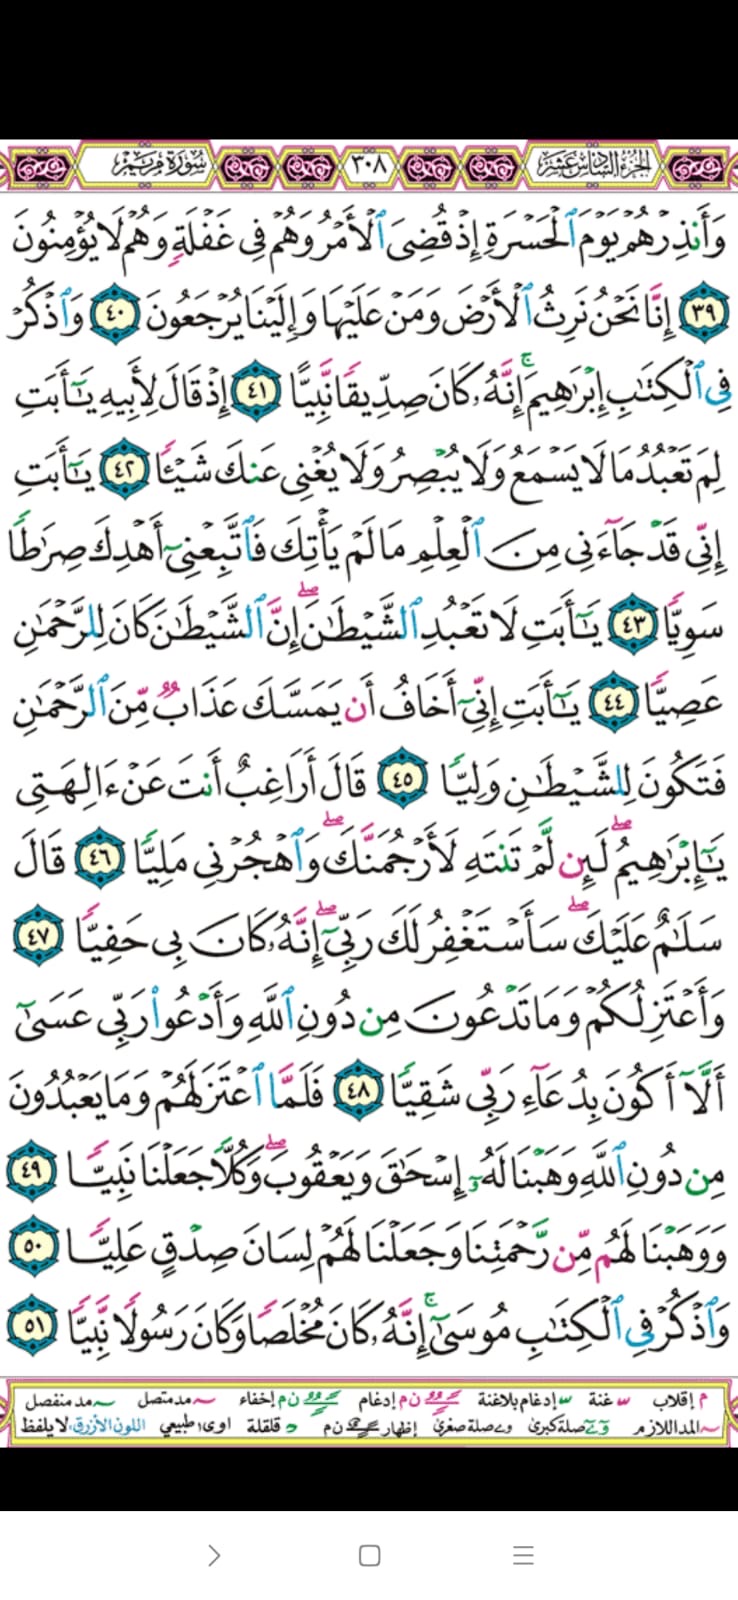 الجزء السادس عشر ٣٠٨ سورة مريم
وَأَنذِرْهُمْ يَوْمَ ٱلْحَسْرَةِ إِذْ قُضِىَ ٱلْأَمْرُ وَهُمْ فِى غَفْلَةٍ وَهُمْ لَا يُؤْمِنُونَ
٣٩ إِنَّا نَحْنُ نَرِثُ ٱلْأَرْضَ وَمَنْ عَلَيْهَا وَإِلَيْنَا يُرْجَعُونَ ٤٠ وَٱذْكُرْ
فِى ٱلْكِتَٰبِ إِبْرَٰهِيمَ ۚ إِنَّهُۥ كَانَ صِدِّيقًا نَّبِيًّا ٤١ إِذْ قَالَ لِأَبِيهِ يَٰٓأَبَتِ
لِمَ تَعْبُدُ مَا لَا يَسْمَعُ وَلَا يُبْصِرُ وَلَا يُغْنِى عَنكَ شَيْـًٔا ٤٢ يَٰٓأَبَتِ
إِنِّى قَدْ جَآءَنِى مِنَ ٱلْعِلْمِ مَا لَمْ يَأْتِكَ فَٱتَّبِعْنِىٓ أَهْدِكَ صِرَٰطًا
سَوِيًّا ٤٣ يَٰٓأَبَتِ لَا تَعْبُدِ ٱلشَّيْطَٰنَ ۖ إِنَّ ٱلشَّيْطَٰنَ كَانَ لِلرَّحْمَٰنِ
عَصِيًّا ٤٤ يَٰٓأَبَتِ إِنِّىٓ أَخَافُ أَن يَمَسَّكَ عَذَابٌ مِّنَ ٱلرَّحْمَٰنِ
فَتَكُونَ لِلشَّيْطَٰنِ وَلِيًّا ٤٥ قَالَ أَرَاغِبٌ أَنتَ عَنْ ءَالِهَتِى
يَٰٓإِبْرَٰهِيمُ ۖ لَئِن لَّمْ تَنتَهِ لَأَرْجُمَنَّكَ ۖ وَٱهْجُرْنِى مَلِيًّا ٤٦ قَالَ
سَلَٰمٌ عَلَيْكَ ۖ سَأَسْتَغْفِرُ لَكَ رَبِّىٓ ۖ إِنَّهُۥ كَانَ بِى حَفِيًّا ٤٧
وَأَعْتَزِلُكُمْ وَمَا تَدْعُونَ مِن دُونِ ٱللَّهِ وَأَدْعُوا۟ رَبِّى عَسَىٰٓ
أَلَّآ أَكُونَ بِدُعَآءِ رَبِّى شَقِيًّا ٤٨ فَلَمَّا ٱعْتَزَلَهُمْ وَمَا يَعْبُدُونَ
مِن دُونِ ٱللَّهِ وَهَبْنَا لَهُۥٓ إِسْحَٰقَ وَيَعْقُوبَ ۖ وَكُلًّا جَعَلْنَا نَبِيًّا ٤٩
وَوَهَبْنَا لَهُم مِّن رَّحْمَتِنَا وَجَعَلْنَا لَهُمْ لِسَانَ صِدْقٍ عَلِيًّا ٥٠
وَٱذْكُرْ فِى ٱلْكِتَٰبِ مُوسَىٰٓ ۚ إِنَّهُۥ كَانَ مُخْلَصًا وَكَانَ رَسُولًا نَّبِيًّا ٥١
م إقلاب غنة إدغام بلاغنة ن م إدغام ن م إخفاء مد متصل مد منفصل
المد اللازم صلة كبرى صلة صغرى إظهار ن م قلقلة اوى طبيعي اللون الأزرق: لا يلفظ